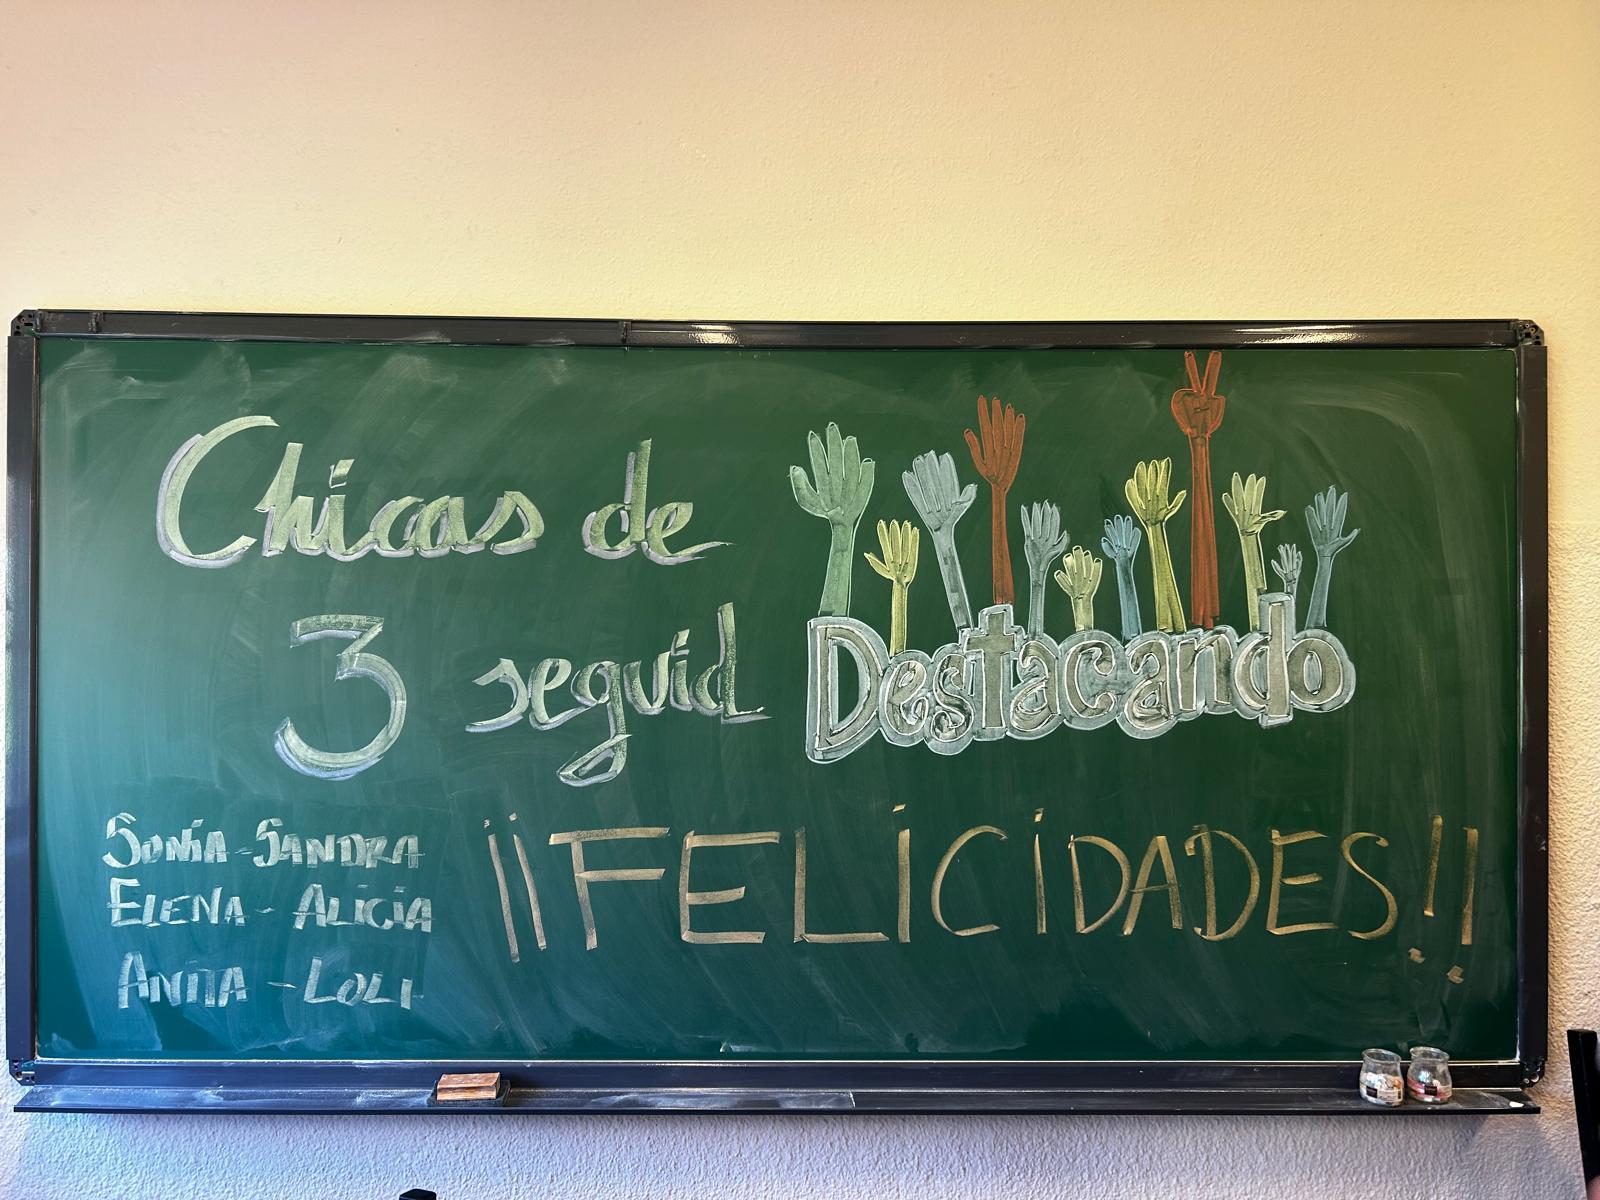 Chicas de
3 seguid
Destacando
Sonia - Sandra
Elena - Alicia
Anita - Loli
¡¡FELICIDADES!!